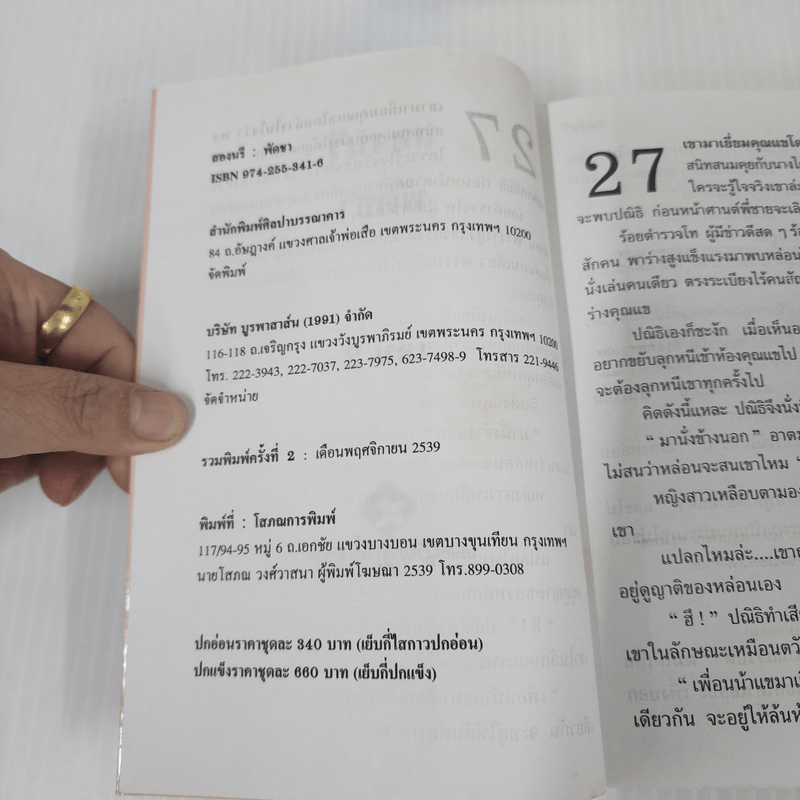 สองนรี : พัดชา
ISBN 974-255-341-6
สำนักพิมพ์ศิลปาบรรณาคาร
84 ถ.อัษฎางค์ แขวงศาลเจ้าพ่อเสือ เขตพระนคร กรุงเทพฯ 10200
จัดพิมพ์
บริษัท บูรพาสาส์น (1991) จำกัด
116-118 ถ.เจริญกรุง แขวงวังบูรพาภิรมย์ เขตพระนคร กรุงเทพฯ 10200
โทร. 222-3943, 222-7037, 223-7975, 623-7498-9 โทรสาร 221-9446
จัดจำหน่าย
รวมพิมพ์ครั้งที่ 2 : เดือนพฤศจิกายน 2539
พิมพ์ที่ : โสภณการพิมพ์
117/94-95 หมู่ 6 ถ.เอกชัย แขวงบางบอน เขตบางขุนเทียน กรุงเทพฯ
นายโสภณ วงศ์วาสนา ผู้พิมพ์โฆษณา 2539 โทร.899-0308
ปกอ่อนราคาชุดละ 340 บาท (เย็บกี่ไสกาวปกอ่อน)
ปกแข็งราคาชุดละ 660 บาท (เย็บกี่ปกแข็ง)
27
เขามาเยี่ยมคุณแขโด
สนิทสนมคุยกับนางไ
ใครจะรู้ใจจริงเขาล่
จะพบปณิธิ ก่อนหน้าศานต์พี่ชายจะเลิ
ร้อยตำรวจโท ผู้มีข่าวดีสด ๆ ร้
สักคน พาร่างสูงแข็งแรงมาพบหล่อน
นั่งเล่นคนเดียว ตรงระเบียงไร้คนสั
ร่างคุณแข
ปณิธิเองก็ชะงัก เมื่อเห็นอ
อยากขยับลุกหนีเข้าห้องคุณแขไป
จะต้องลุกหนีเขาทุกครั้งไป
คิดดังนี้แหละ ปณิธิจึงนั่ง
“ มานั่งข้างนอก ” อาตม
ไม่สนว่าหล่อนจะสนเขาไหม “
หญิงสาวเหลือบตามอง
เขา
แปลกไหมล่ะ....เขาถ
อยู่ดูญาติของหล่อนเอง
“ ฮึ ! ” ปณิธิทำเสี
เขาในลักษณะเหมือนตวั
“ เพื่อนน้าแขมาเ
เดียวกัน จะอยู่ให้ล้นห้